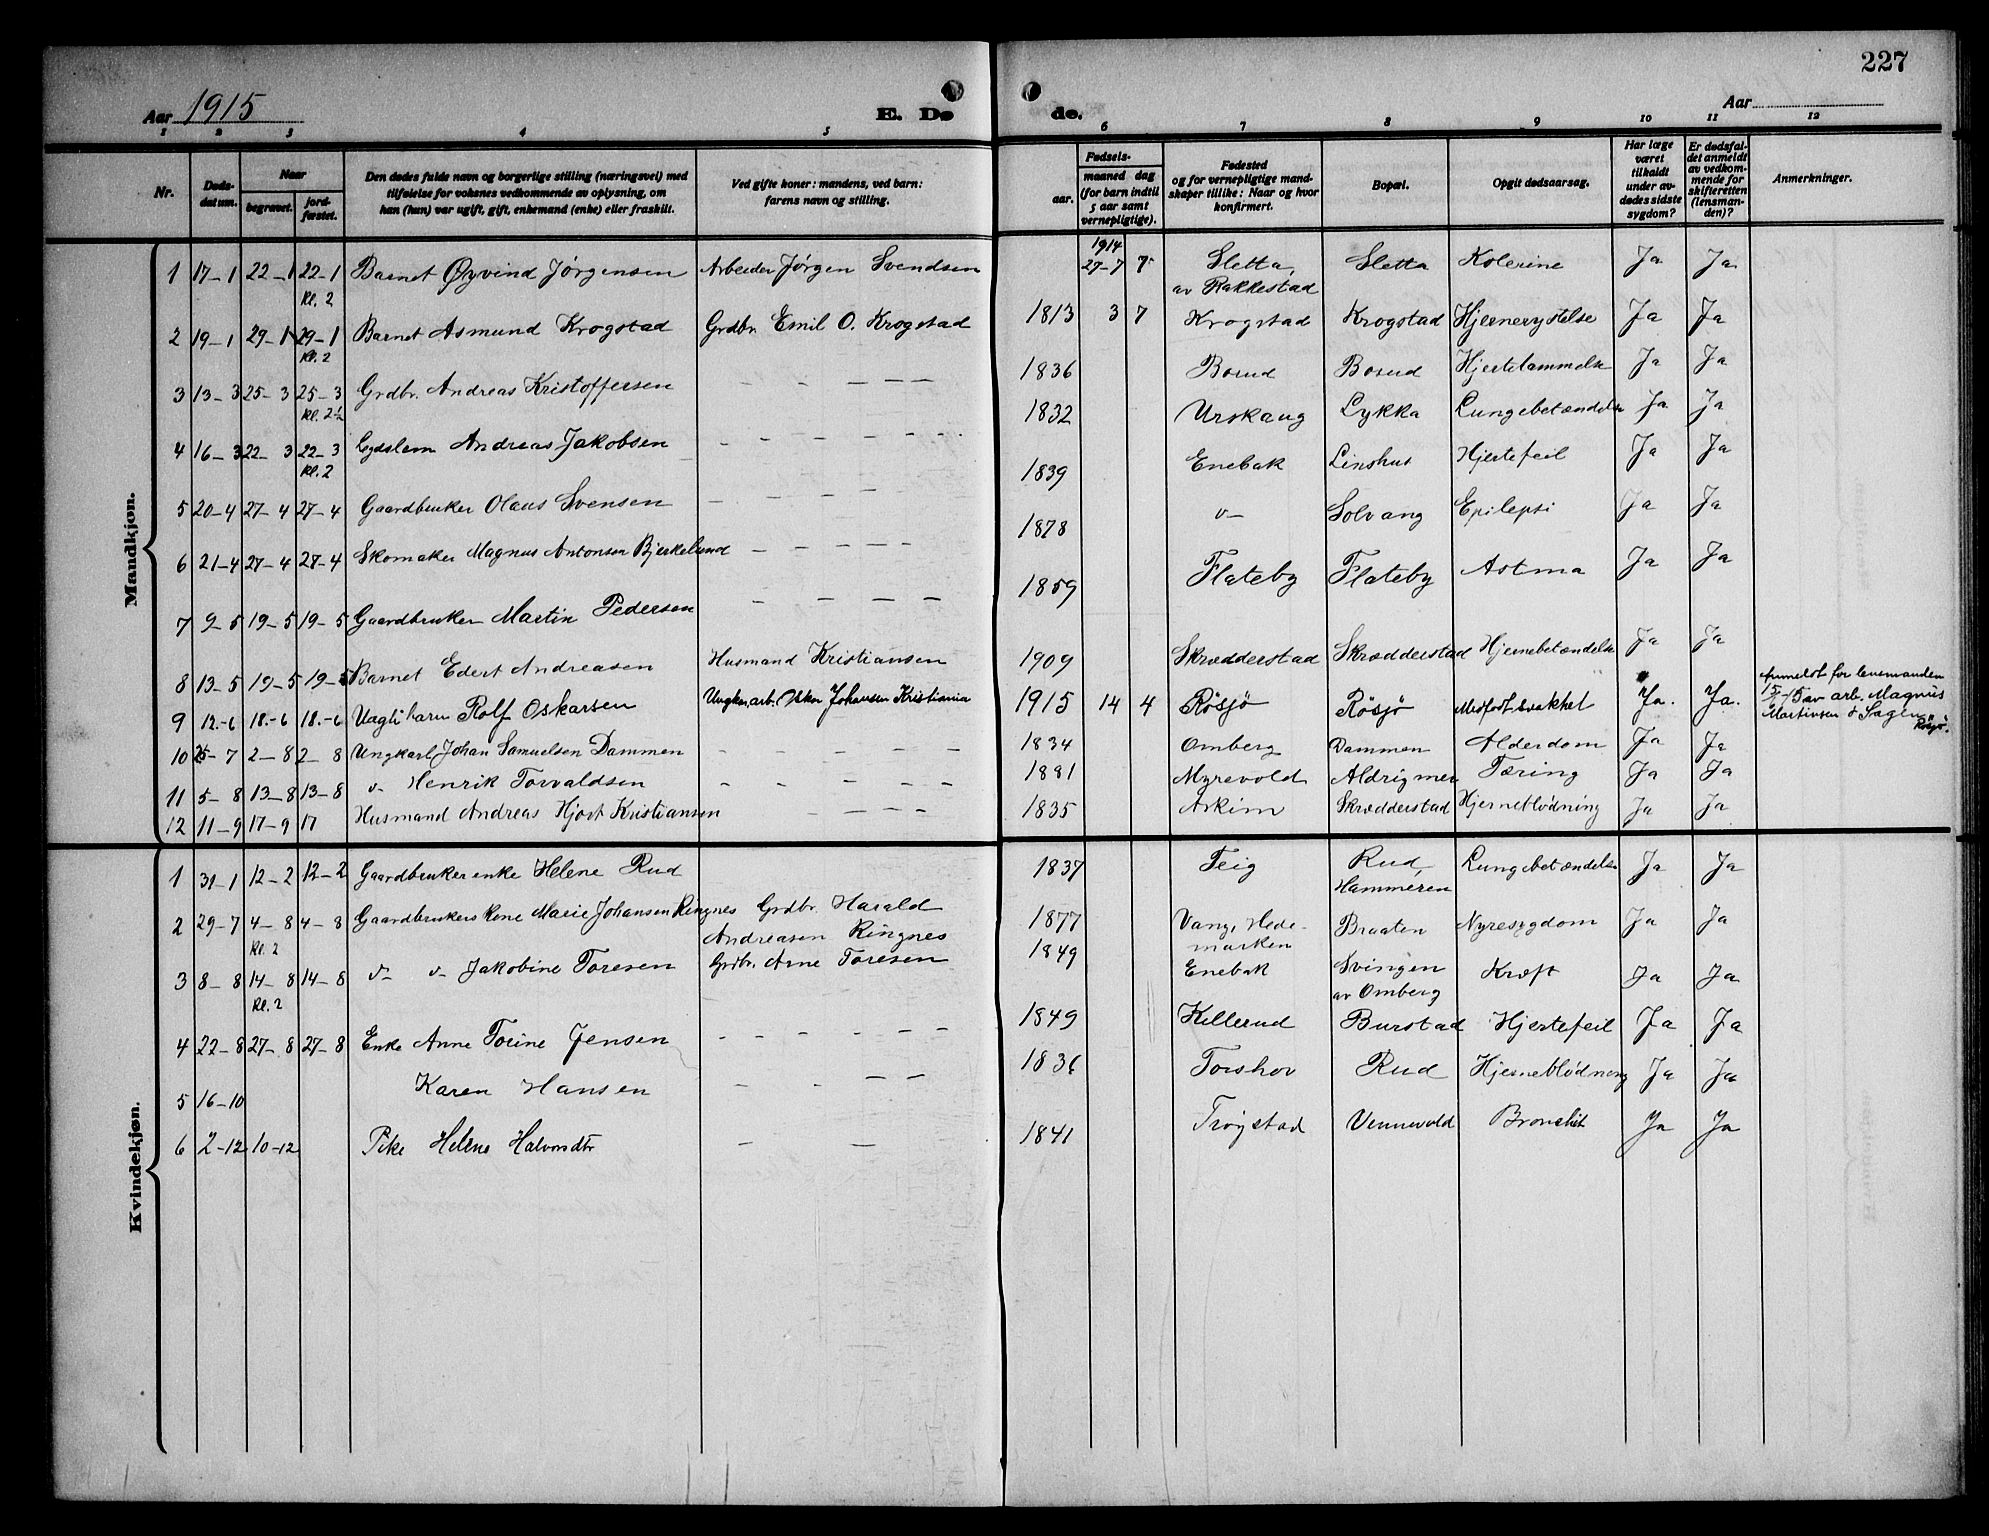 227
Aar 1915
E. Dø
de.
Aar
1 2 3 4 5
6 7 8 9 10 11 12
Nr.
Døds-
datum.
Naar
begravet.
jord-
fæstet.
Den dødes fulde navn og borgerlige stilling (næringsvei) med
tilføielse for voksnes vedkommende av oplysning, om
han (hun) var ugift, gift, enkemand (enke) eller fraskilt.
Ved gifte koner: mandens, ved barn:
farens navn og stilling.
Fødsels-
aar.
maaned dag
(for barn indtil
5 aar samt
vernepligtige).
Fødested
og for vernepligtige mand-
skaper tillike: Naar og hvor
konfirmert.
Bopæl.
Opgit dødsaarsag.
Har læge
været
tilkaldt
under av-
dødes sidste
sygdom?
Er dødsfal-
det anmeldt
av vedkom-
mende for
skifteretten
(lensman-
den)?
Anmerkninger.
Mandkjøn.
1 17-1 22-1 22-1 Barnet Øyvind Jørgensen Arbeider Jørgen Svendsen 1914 27-7 7 Sletta, Sletta Kolerine Ja Ja
kl. 2 av Rakkestad
2 19-1 29-1 29-1 Barnet Asmund Krogstad Grdbr. Emil O. Krogstad 1813 3 7 Krogstad Krogstad Hjernerystelse Ja Ja
kl. 2
3 13-3 25-3 25-3 Grdbr. Andreas Kristoffersen - - - - - 1836 Borud Borud Hjertelammelse Ja Ja
kl. 2½
4 16-3 22-3 22-3 Lægdslem Andreas Jakobsen - - - - - - 1832 Urskaug Lykka Lungebetændelse Ja Ja
kl. 2
5 20-4 27-4 27-4 Gaardbruker Olaus Svensen - - - - - 1839 Enebak Linshus Hjertefeil Ja Ja
6 21-4 27-4 27-4 Skomaker Magnus Antonsen Bjerkelund - - - - 1878 v- Solvang Epilepsi Ja Ja
7 9-5 19-5 19-5 Gaardbruker Martin Pedersen - - - - 1859 Flateby Flateby Astma Ja Ja
8 13-5 19-5 19-5 Barnet Edert Andreasen Husmand Kristiansen 1909 Skrædderstad Skrædderstad Hjernebetændelse Ja Ja
9 12.-6 18.-6 18.-6 Uegti barn Rolf Oskarsen Ungk. arb. Oskar Johansen Kristiania 1915 14 4 Røsjø Røsjø Medfødt svakhet Ja. Ja. Anmeldt for lensmanden
15/6-15 av arb. Magnus
Martinsen Sagen
Røsjø.
10 25-7 2-8 2-8 Ungkarl Johan Samuelsen Dammen - - - - - 1834 Omberg Dammen Alderdom Ja Ja
11 5-8 13-8 13-8 v- Henrik Torvaldsen - - - - - 1881 Myrevold Aldrigmer Tæring Ja Ja
12 11-9 17-9 17 Husmand Andreas Hjort Kristiansen - - - - 1835 Askim Skrædderstad Hjerneblødning Ja Ja
Kvindekjøn.
1 31-1 12-2 12-2 Gaardbrukerenke Helene Rud 1837 Teig Rud, Lungebetændelse Ja Ja
Hammeren
2 29-7 4-8 4-8 Gaardbrukers kone Marie Johansen Ringnes Grdbr. Harald 1877 Vang, Hede- Braaten Nyresygdom Ja Ja
kl. 2 Andreasen Ringnes marken
3 8-8 14-8 14-8 v- v- Jakobine Toresen Grdbr. Arne Toresen 1849 Enebak Svingen Kræft Ja Ja
kl. 2 av Omberg
4 22-8 27-8 27-8 Enke Anne Torine Jensen - - - - - - 1849 Kellerud Burstad Hjertefeil Ja Ja
5 16-10 Karen Hansen - - - - 1836 Torshov Rud Hjerneblødning Ja Ja
6 2-12 10-12 Pike Helene Halvorsdtr - - 1841 Trøgstad Vennevold Bronchit Ja Ja